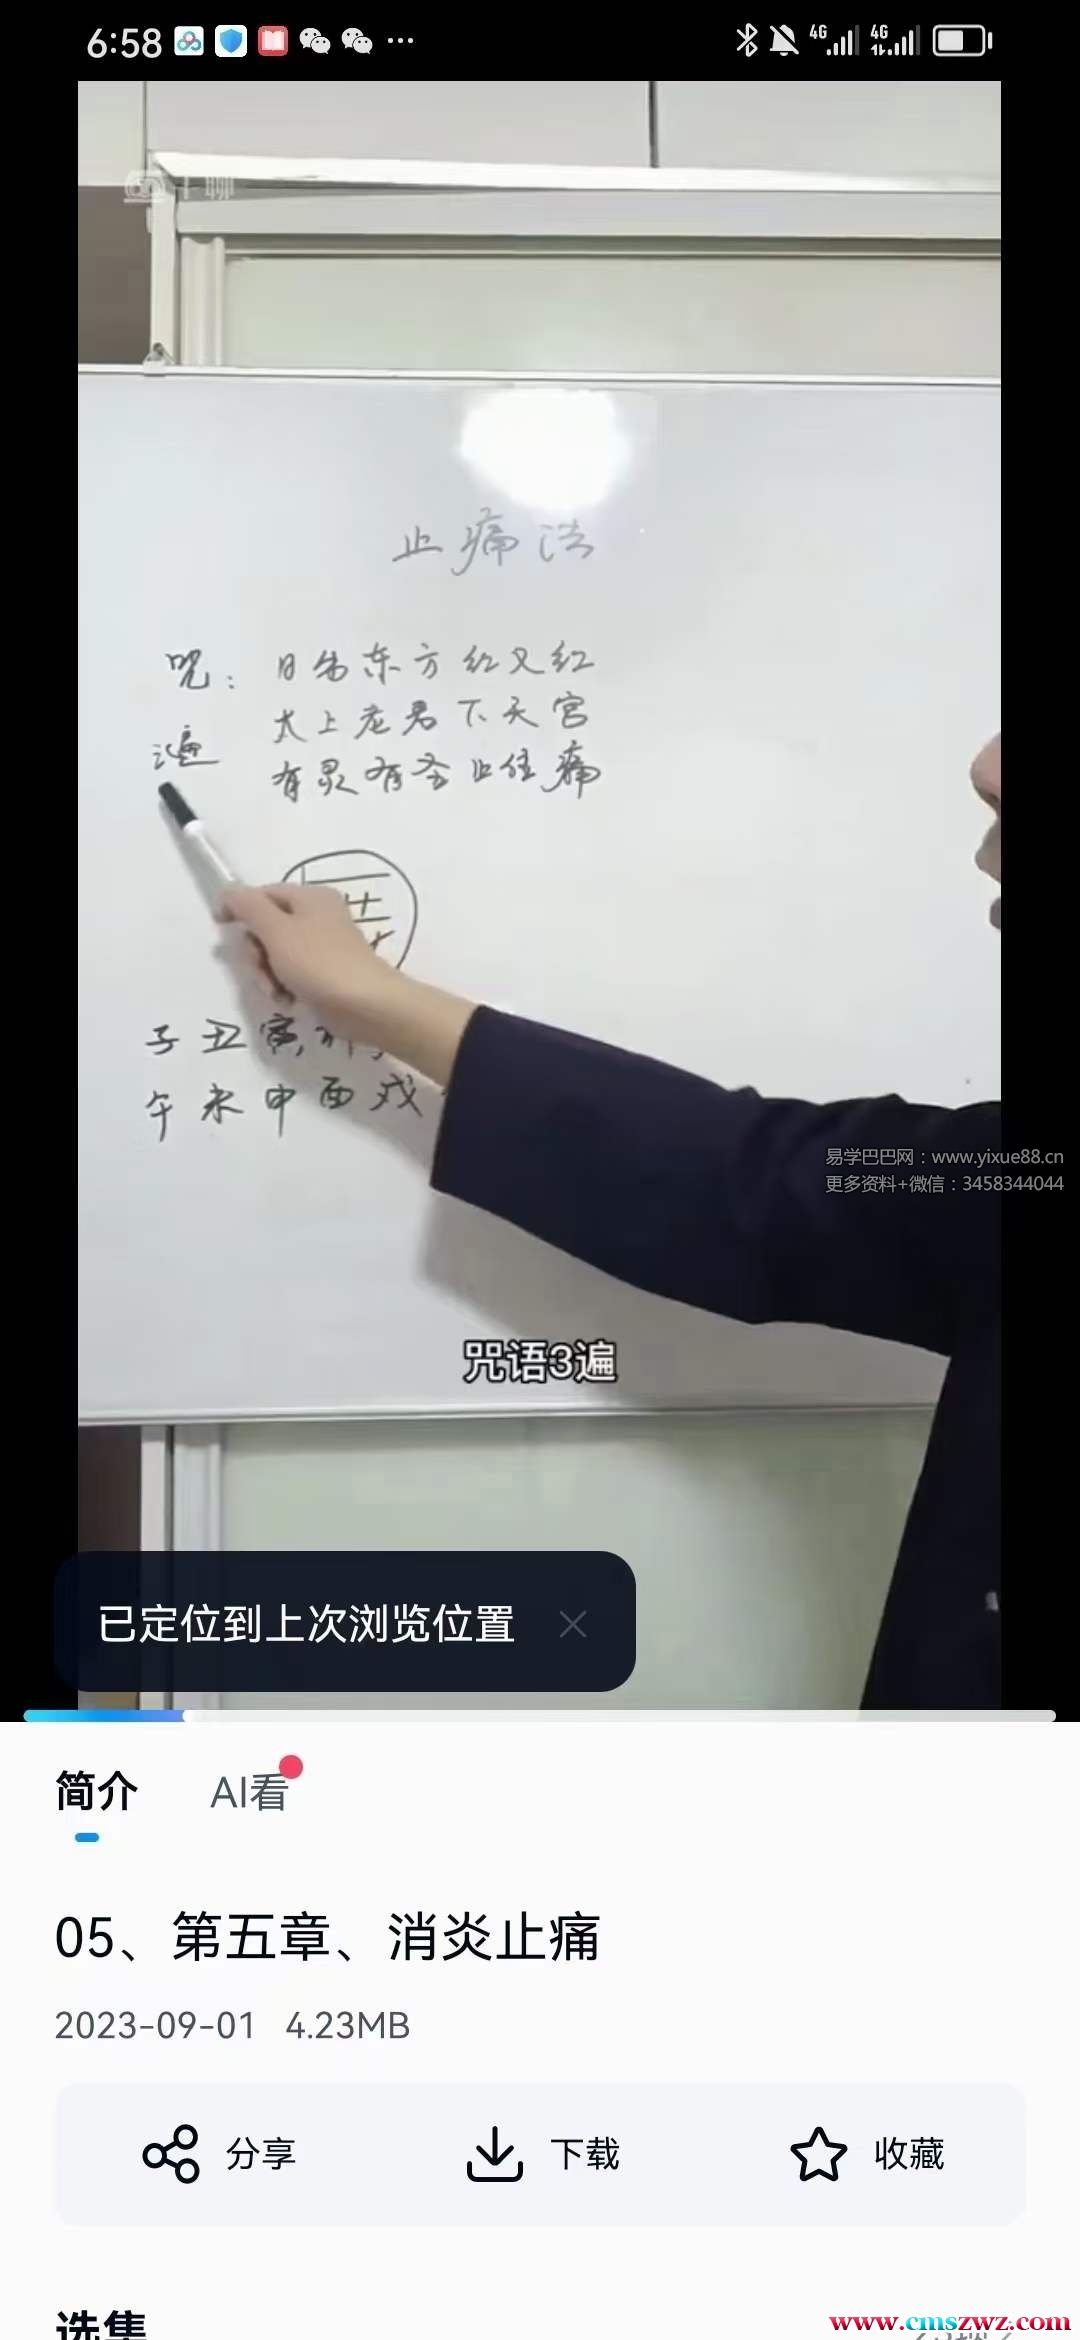 6:58
4G
4G
千聊
止痛法
咒：
日出东方红又红
太上老君下天宫
遍
有灵有圣止住痛
子丑寅卯
午未申酉戌
易学巴巴网：www.yixue88.cn
更多资料+微信：3458344044
咒语3遍
已定位到上次浏览位置
简介
AI看
05、第五章、消炎止痛
2023-09-01 4.23MB
分享
下载
收藏
选集
www.cmszwz.com